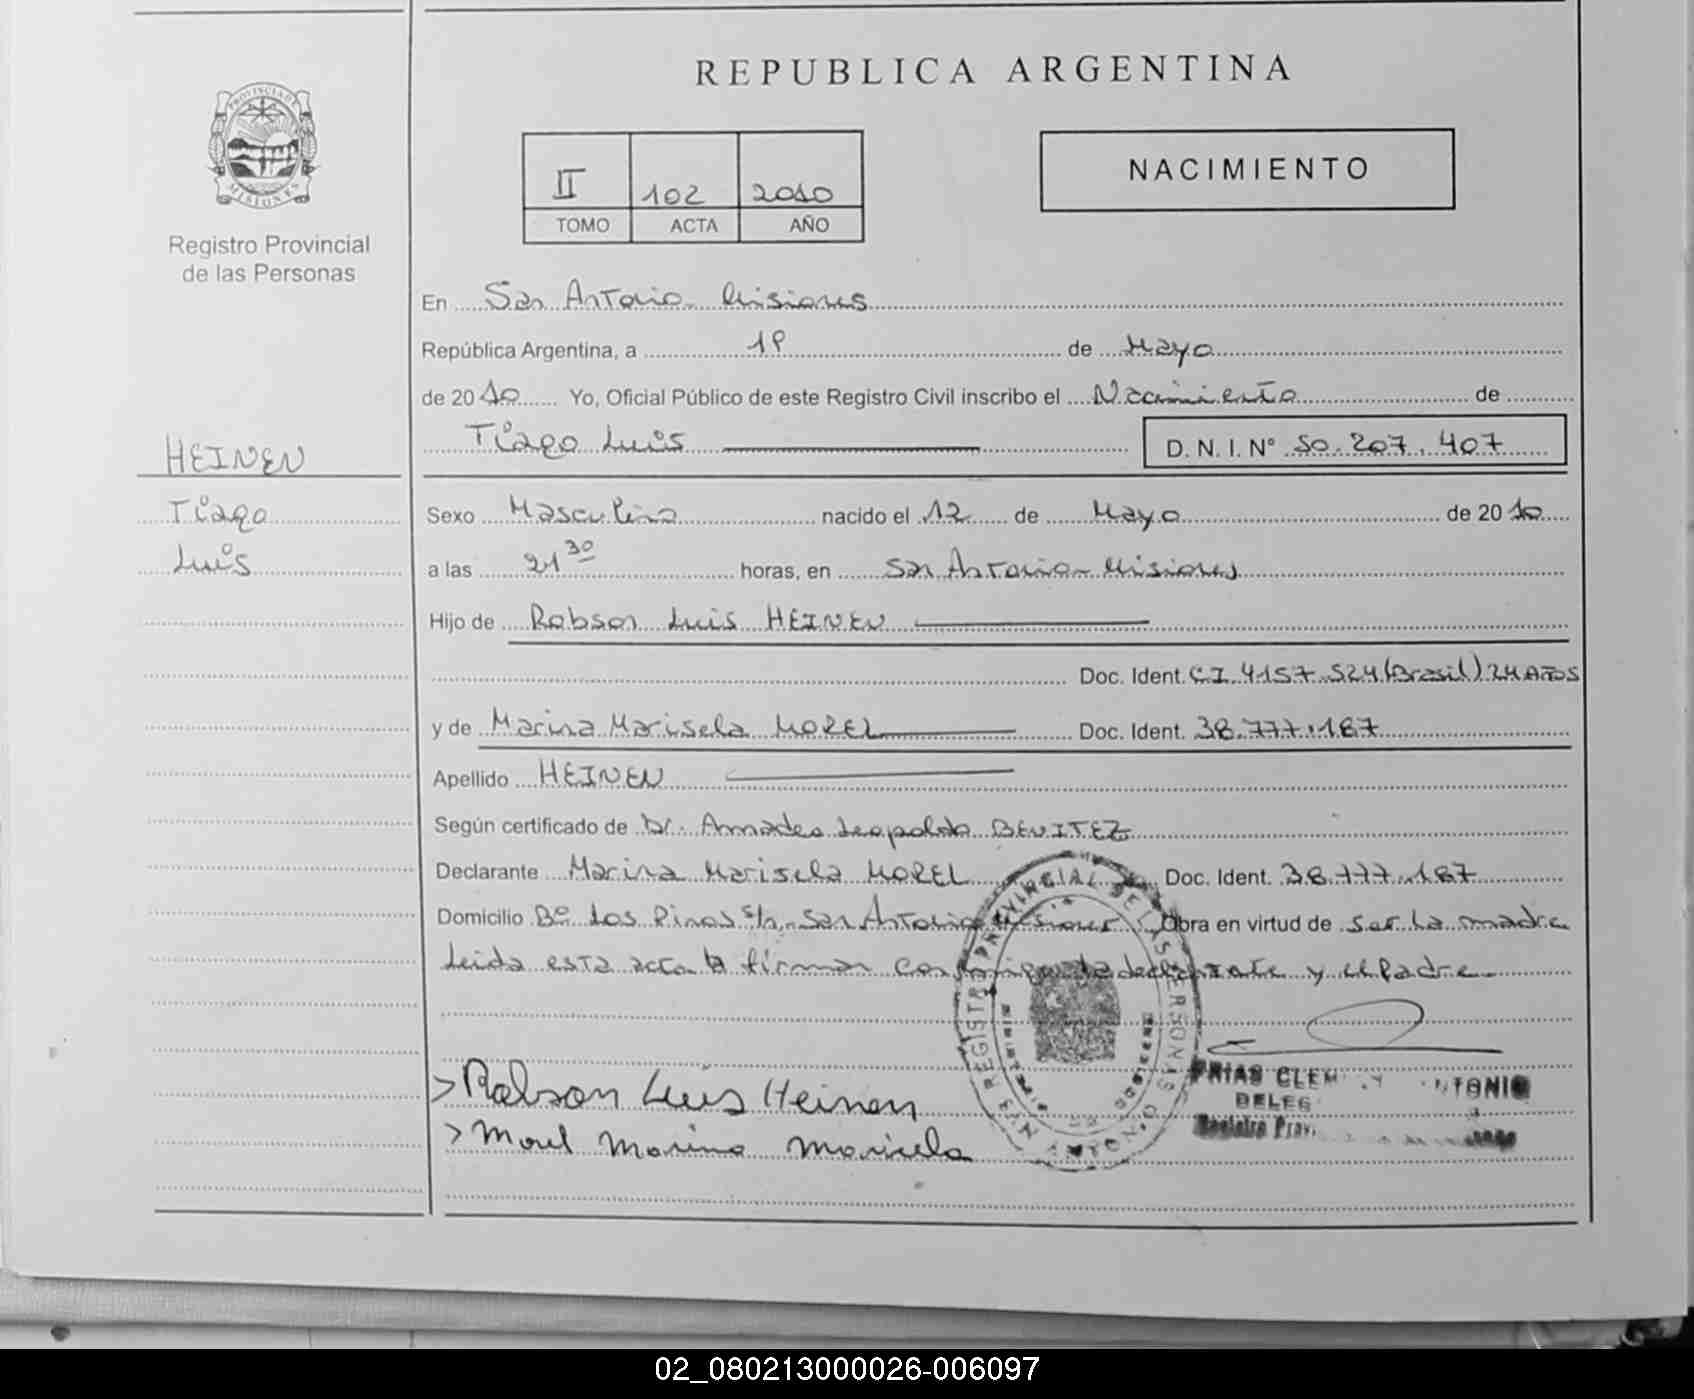 REPUBLICA ARGENTINA
PROVINCIA DE
MISIONES
Registro Provincial
de las Personas
II 102 2010
TOMO ACTA AÑO
NACIMIENTO
En San Antonio Misiones
República Argentina, a 19 de Mayo
de 2010 Yo, Oficial Público de este Registro Civil inscribo el Nacimiento de
Tiago Luis D. N. I. Nº 50.207.407
HEINEN
Tiago
Luis
Sexo Masculino nacido el 12 de Mayo de 2010
a las 21 30 horas, en San Antonio Misiones
Hijo de Robson Luis HEINEN
Doc. Ident. C.I. 4157.524 (Brasil) 24 AÑOS
y de Marina Marisela MOREL Doc. Ident. 38.777.187
Apellido HEINEN
Según certificado de Dr. Amadeo Leopoldo BENITEZ
Declarante Marina Marisela MOREL Doc. Ident. 38.777.187
Domicilio Bº Los Pinos s/n. San Antonio Misiones Obra en virtud de ser la madre
Leida esta acta la firman conmigo la declarante y el Padre
Robson Luis Heinen
Morel Marina Marisela
REGISTRO PROVINCIAL DE LAS PERSONAS
02_080213000026-006097